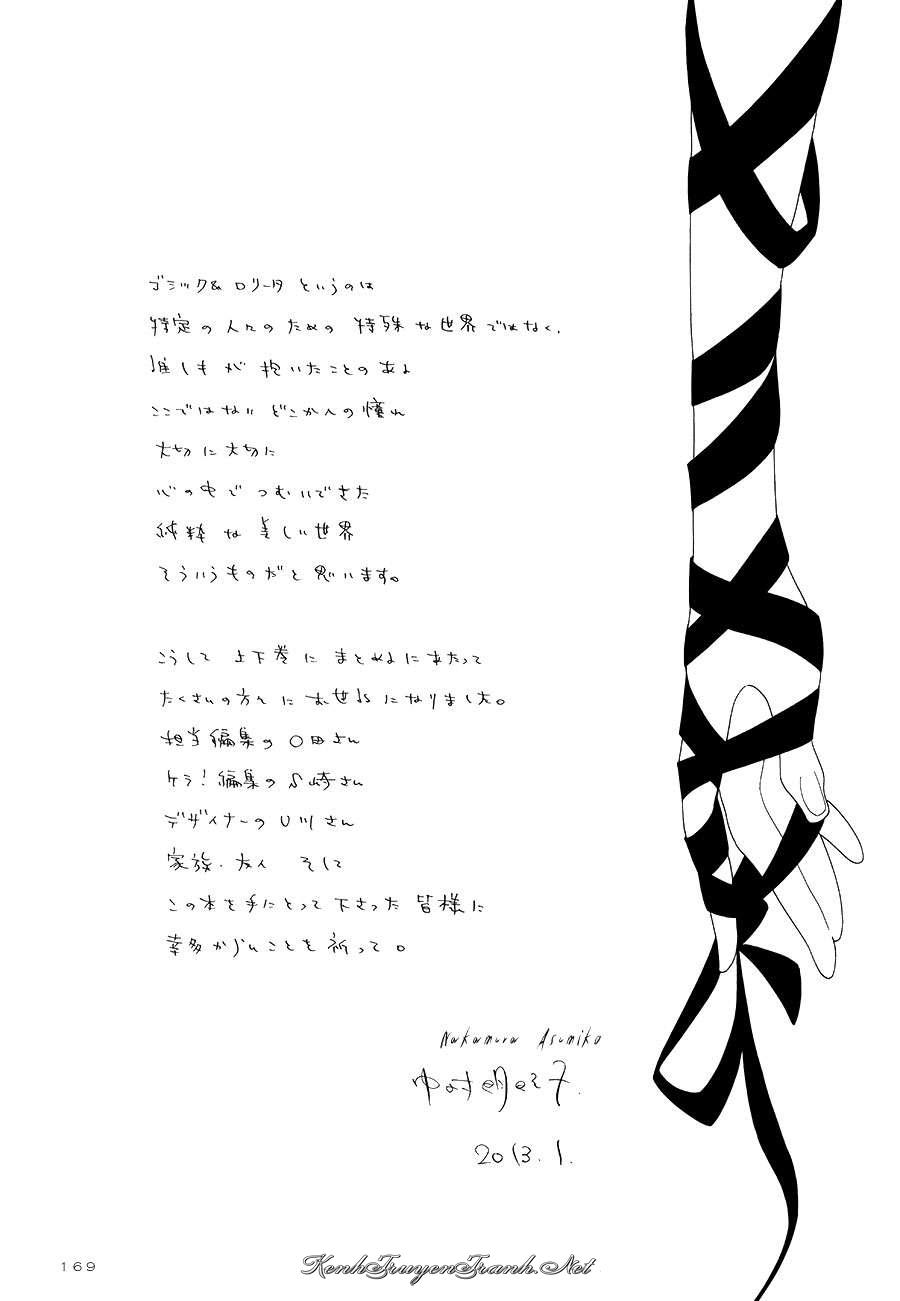 ゴシック&ロリータというのは
特定の人々のための特殊な世界ではなく、
誰しもが抱いたことのある
ここではないどこかへの憧れ
大切に大切に
心の中でつむいできた
純粋な美しい世界
そういうものだと思います。
こうして上下巻にまとめるにあたって
たくさんの方々にお世話になりました。
担当編集の〇田さん
ケラ!編集の S崎さん
デザイナーの U川さん
家族・友人 そして
この本を手にとって下さった皆様に
幸多からんことを祈って。
Nakamura Asumiko
中村明日美子
2013.1.
169
KenhTruyenTranh.Net